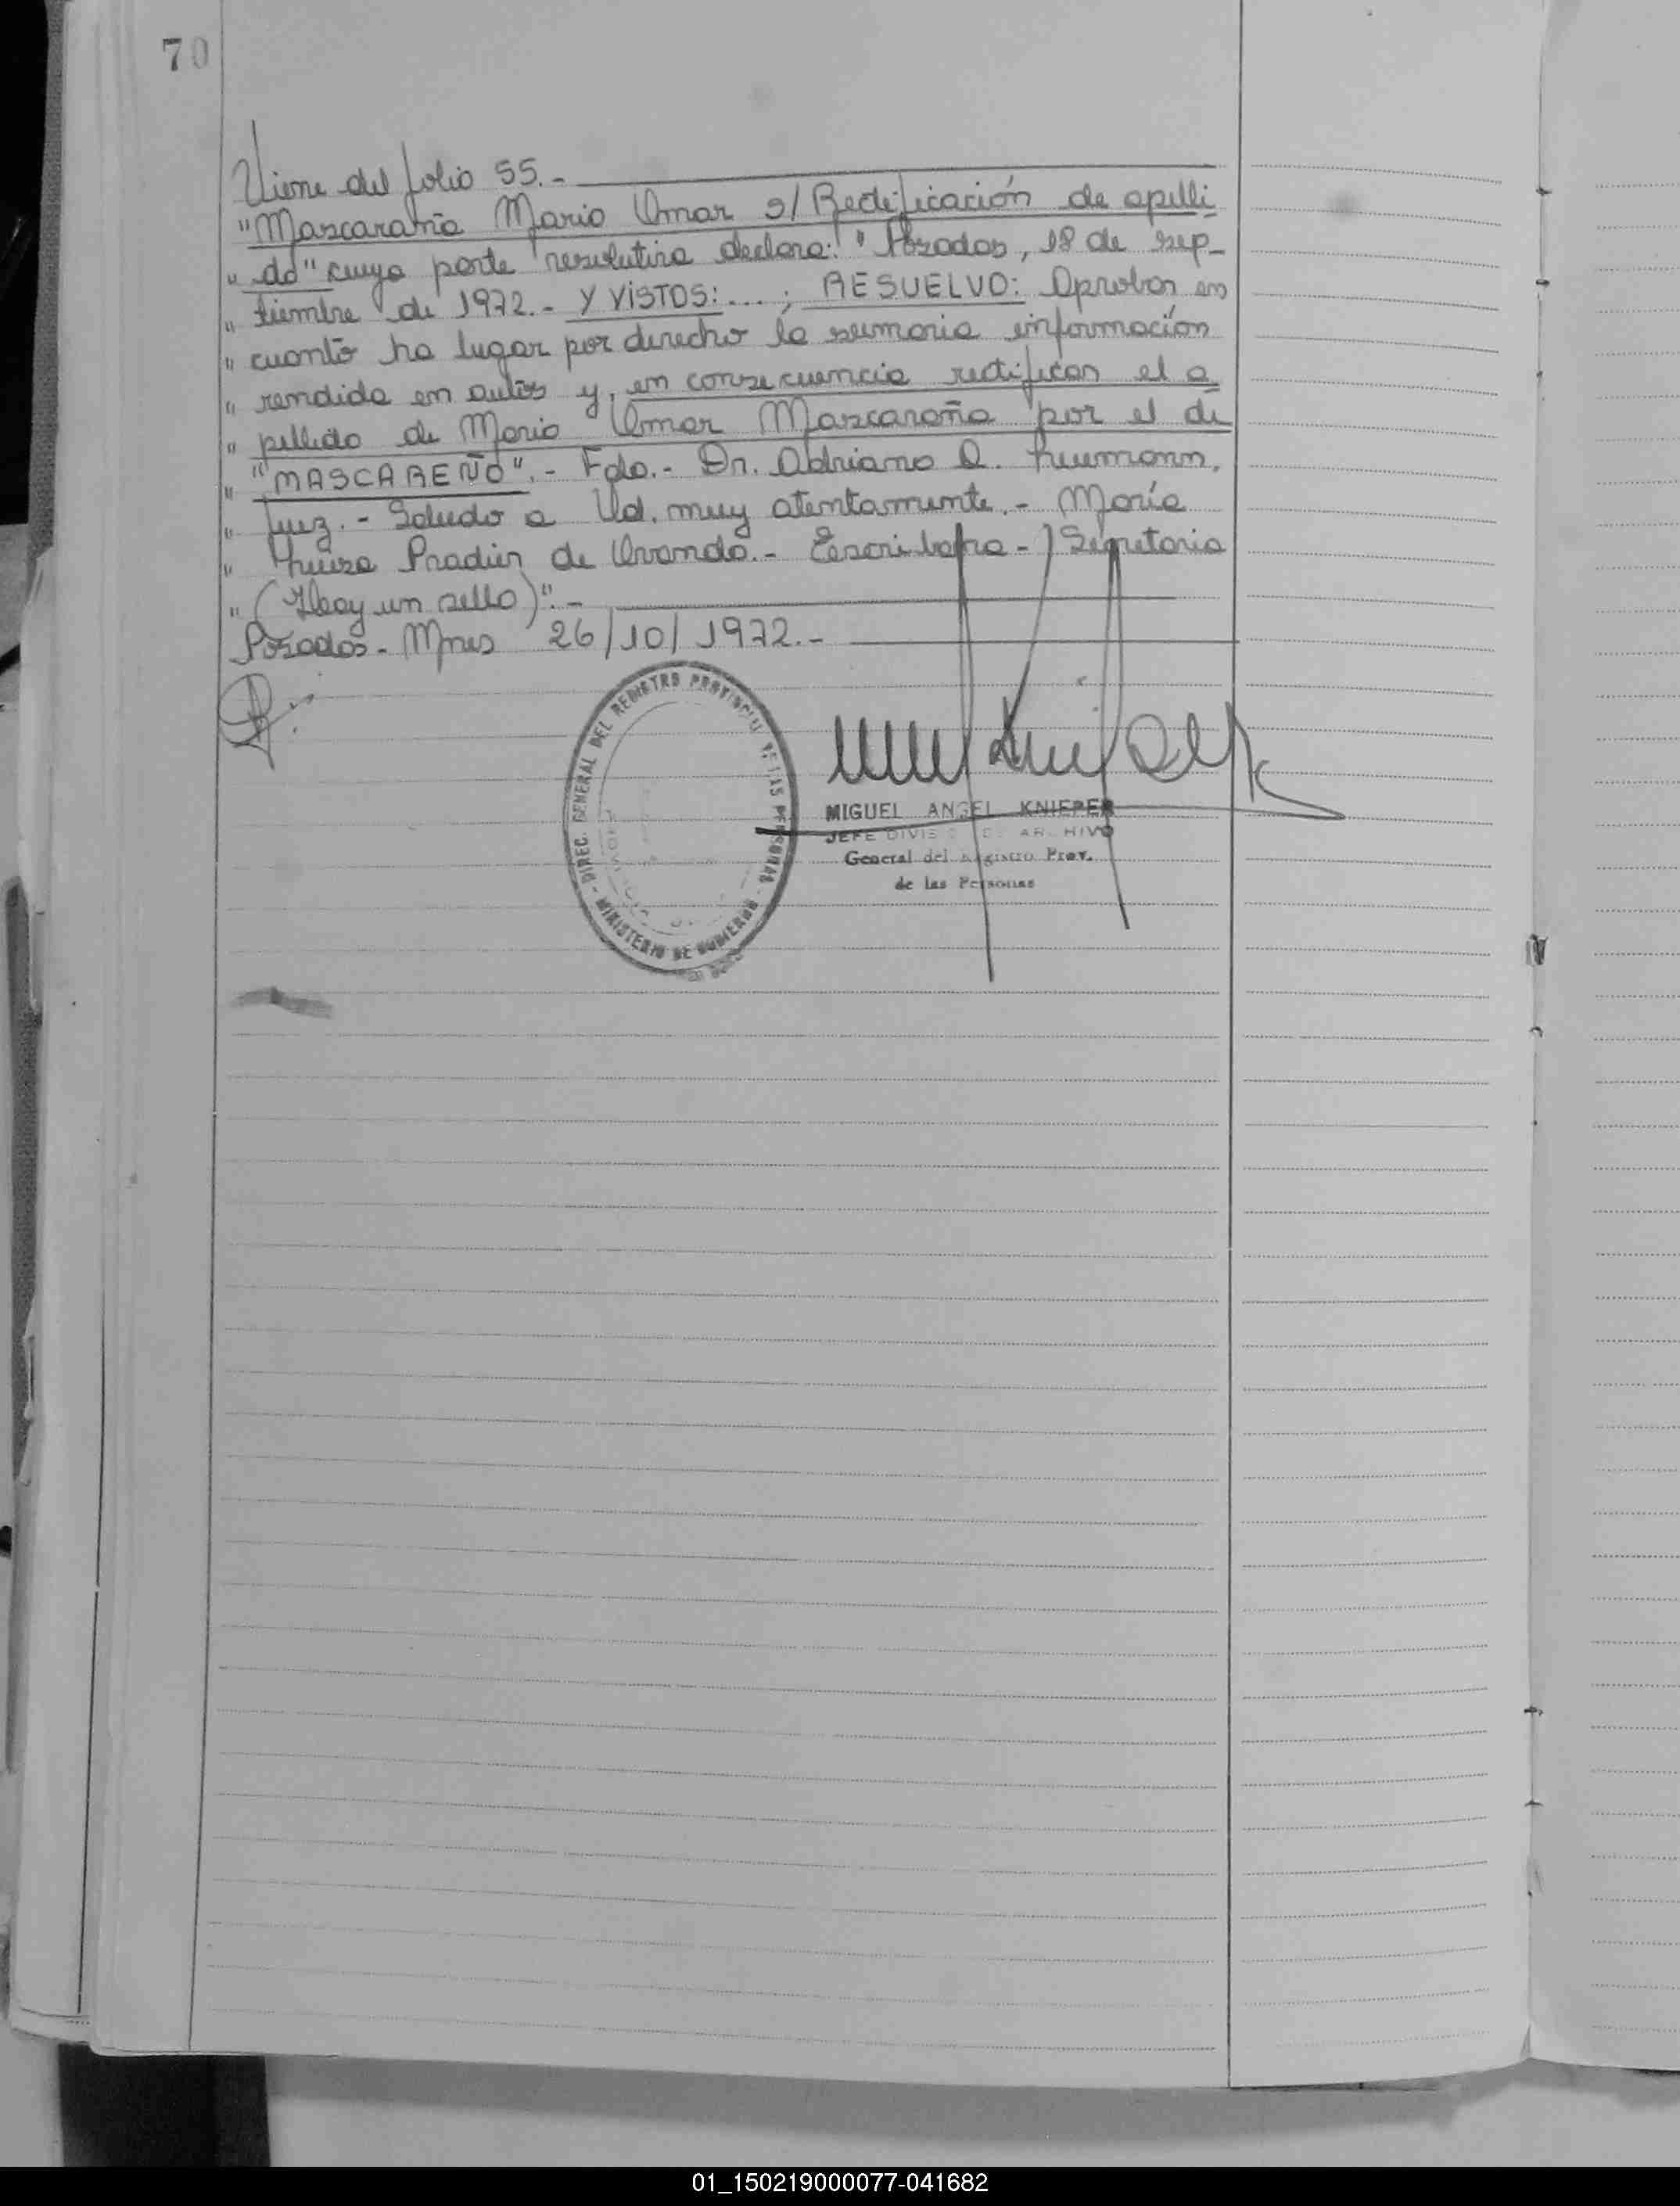 70
Viene del folio 55.-
"Mascaraña Mario Omar s/ Rectificación de apelli
" do" cuya parte resolutiva declara: "Posadas, 18 de sep-
" tiembre de 1972.- Y VISTOS: ... ; RESUELVO: Aprobar en
" cuanto ha lugar por derecho la sumaria información
" rendida en autos y, en consecuencia rectificar el a
" pellido de Mario Omar Mascaraña por el de
" "MASCAREÑO".- Fdo.- Dr. Adriano Q.
" Juez.- Saludo a Ud. muy atentamente.- María
" Luisa Pradier de Ovando.- Escribana - Secretaria
" (Hay un sello)".-
Posadas - Mnes 26/10/1972.-
DIREC. GENERAL DEL REGISTRO PROVINCIAL DE LAS PERSONAS - MINISTERIO DE GOBIERNO
MIGUEL ANGEL KNIEPER
JEFE DIVIS ARCHIVO
General del Registro Prov.
de las Personas
01_150219000077-041682